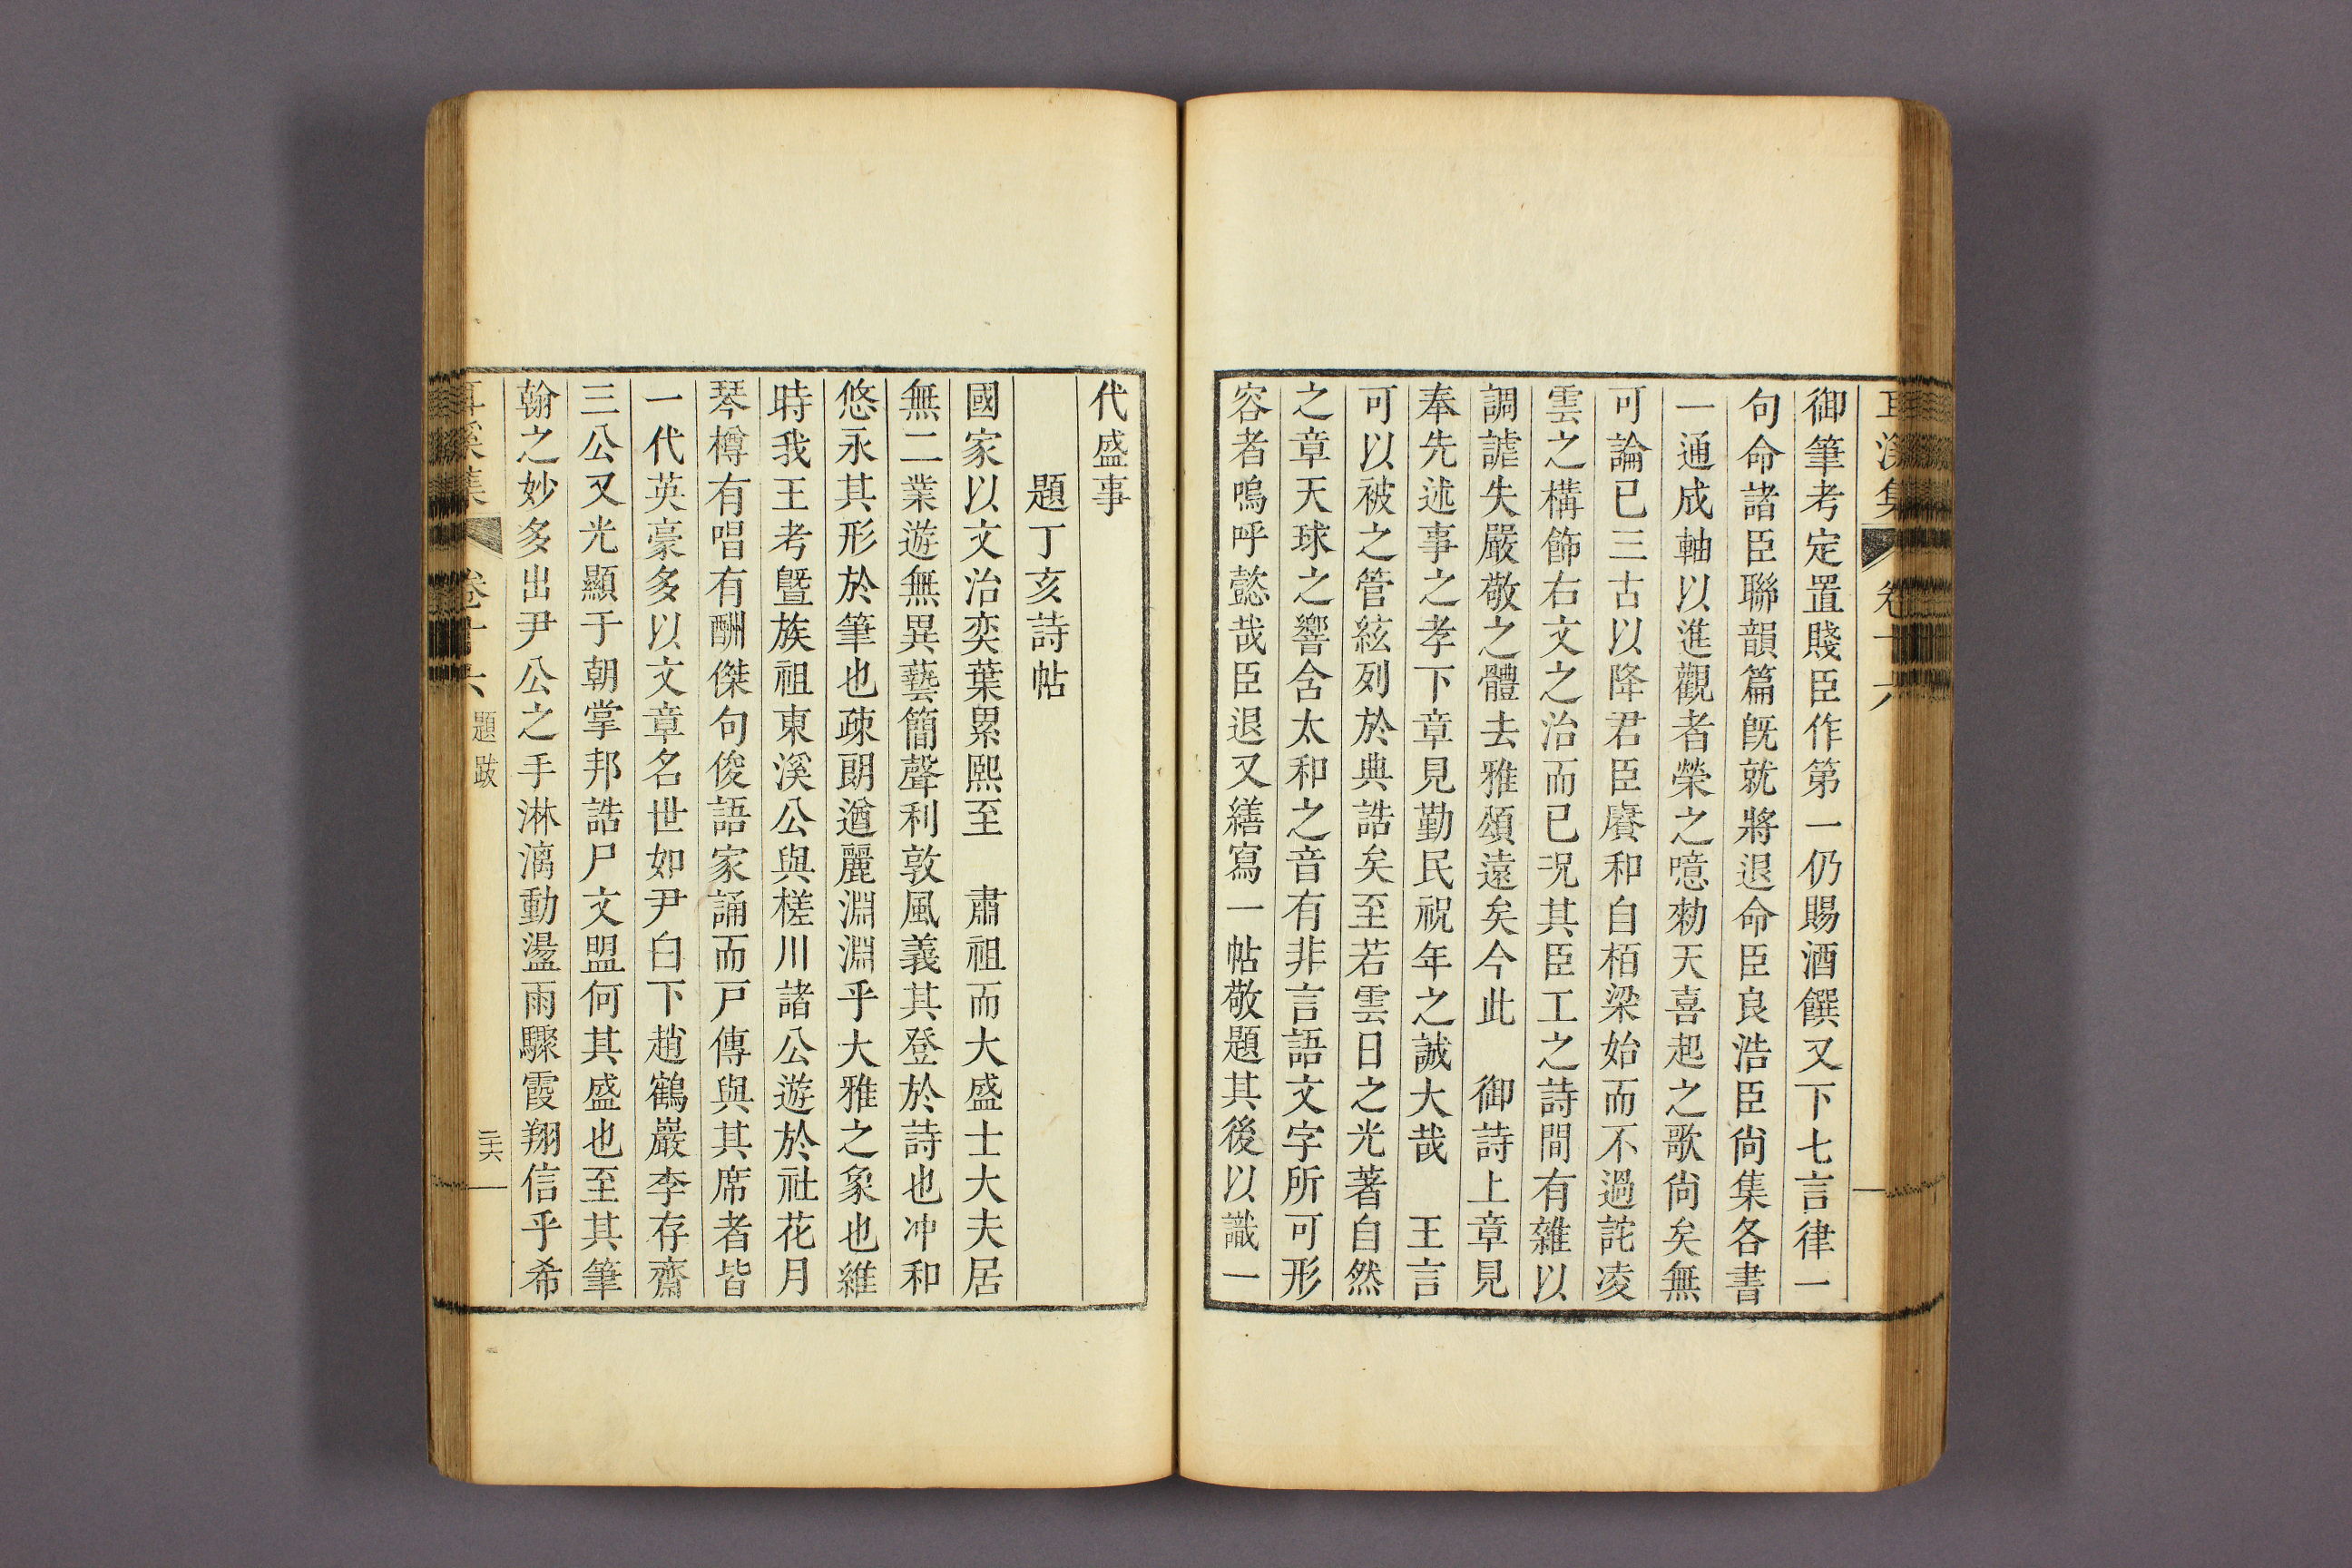 耳溪集 卷十六
御筆考定置賤臣作第一仍賜酒饌又下七言律一
句命諸臣聯韻篇旣就將退命臣良浩臣尙集各書
一通成軸以進觀者榮之噫勑天喜起之歌尙矣無
可論已三古以降君臣賡和自栢梁始而不過詫凌
雲之構飾右文之治而已况其臣工之詩間有雜以
調謔失嚴敬之體去雅頌遠矣今此 御詩上章見
奉先述事之孝下章見勤民祝年之誠大哉 王言
可以被之管絃列於典誥矣至若雲日之光著自然
之章天球之響含太和之音有非言語文字所可形
容者嗚呼懿哉臣退又繕寫一帖敬題其後以識一
代盛事
題丁亥詩帖
國家以文治奕葉累熙至 肅祖而大盛士大夫居
無二業遊無異藝簡聲利敦風義其登於詩也冲和
悠永其形於筆也疎朗遒麗淵淵乎大雅之象也維
時我王考曁族祖東溪公與槎川諸公遊於社花月
琴樽有唱有酬傑句俊語家誦而戶傳與其席者皆
一代英豪多以文章名世如尹白下趙鶴巖李存齋
三公又光顯于朝掌邦誥尸文盟何其盛也至其筆
翰之妙多出尹公之手淋漓動盪雨驟霞翔信乎希
耳溪集 卷十六 題跋 二十六